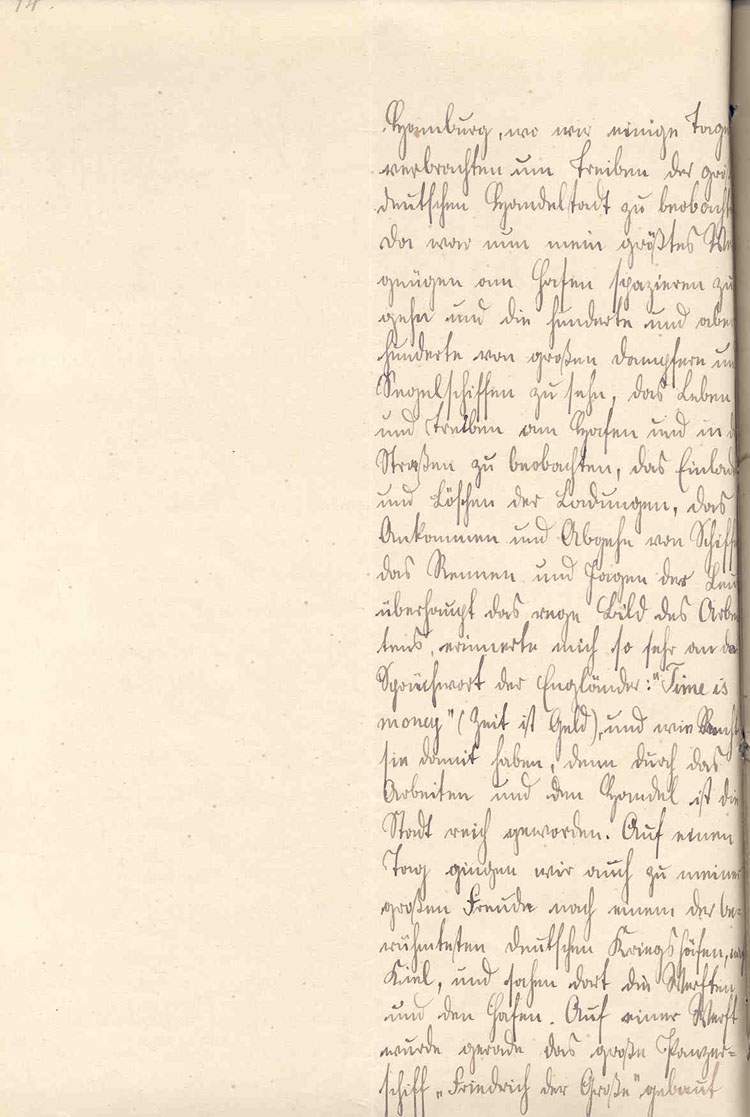 14.
Hamburg, wo wir einige Tage
verbrachten um Treiben der grö
deutschen Handelstadt zu beobach
Da war nun mein größtes Ve
gnügen am Hafen spazieren zu
gehn und die hunderte und aber
hunderte von großen Dampfern un
Segelschiffen zu sehn, das Leben
und Treiben am Hafen und in d
Straßen zu beobachten, das Einlad
und Löschen der Ladungen, das
Ankommen und Abgehn von Schiff
das Rennen und Jagen der Leu
überhaupt das rege Bild des Arbe
tens, erinnerte mich so sehr an da
Sprüchwort der Engländer: "Time is
money" (Zeit ist Geld), und wie Recht
sie damit haben, denn durch das
Arbeiten und den Handel ist die
Stadt reich geworden. Auf einen
Tag gingen wir auch zu meiner
großen Freude nach einem der be-
rühmtesten deutschen Kriegshäfen, nach
Kiel, und sahen dort die Werften
und den Hafen. Auf einer Werft
wurde gerade das große Panzer-
schiff „Friedrich der Große" gebaut